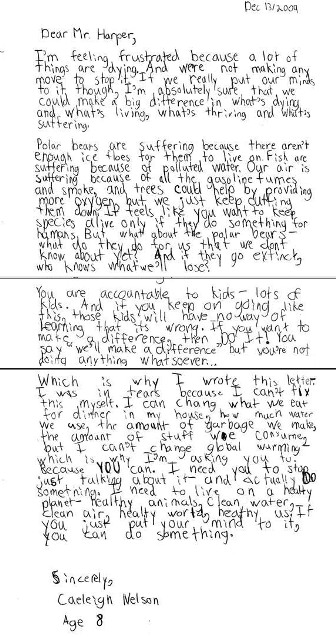 Dec 13/2009
Dear Mr. Harper,
I'm feeling frustrated because a lot of
things are dying. And were not making any
move to stop it. If we really put our minds
to it though, I'm absolutely sure that we
could make a big difference in what's dying
and what's living, what's thriving and what's
suffering.
Polar bears are suffering because there aren't
enough ice floes for them to live on. Fish are
suffering because of polluted water. Our air is
suffering because of all the gasoline fumes
and smoke, and trees could help by providing
more oxygen but we just keep cutting
them down. It feels like you want to keep
species alive only if they do something for
humans. But what about the polar bears-
what do they do for us that we dont
know about yet? And if they go extinct,
who knows what we'll lose?
You are accountable to kids - lots of
kids. And if you keep on going like
this, those kids will have no way of
learning that its wrong. If you want to
make a difference, then DO it! You
say "we'll make a difference" but you're not
doing anything whatsoever...
Which is why I wrote this letter.
I was in tears because I can't fix
this myself. I can chang what we eat
for dinner in my house, how much water
we use, the amount of garbage we make,
the amount of stuff we consume,
but I can't change global warming-
which is why I'm asking you to.
Because YOU can. I need you to stop
just talking about it - and actually DO
something. I need to live on a healty
planet - healthy animals, clean water,
clean air, healty world, healthy us. If
you just put your mind to it,
you can do something.
Sincerely,
Caeleigh Nelson
Age 8